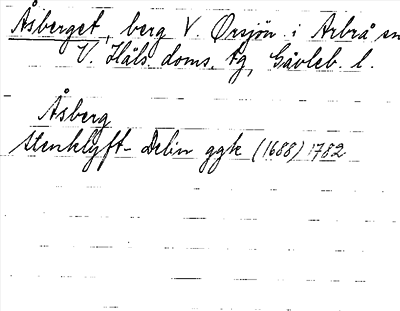 Åsberget, berg V. Örsjön i Arbrå sn
V. Häls. doms. tg, Gävleb. l.
Åsberg
Stenklyft- Delin ggk (1688) 1782